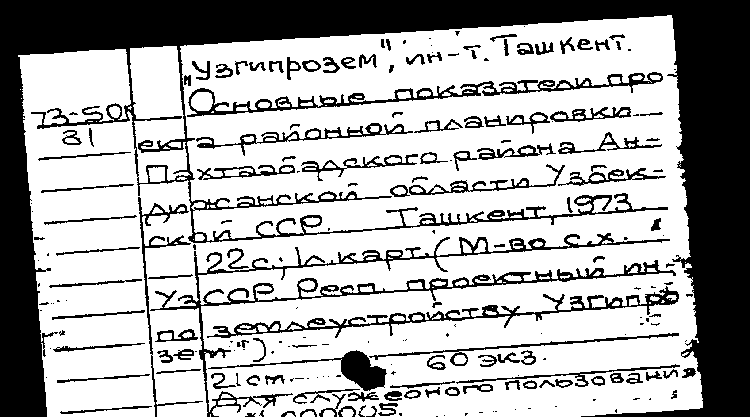 „Узгипрозем", ин-т. Ташкент.
73-50к
81
Основные показатели про-
екта районной планировки
Пахтаабадского района Ан-
дижанской области Узбек-
ской ССР. Ташкент, 1973.
22с.; 1л.карт. (М-во с.х.
УзССР. Респ. проектный ин-т
по землеустройству „Узгипро-
зем").
21см. 60 экз.
Для служебного пользования
000005.